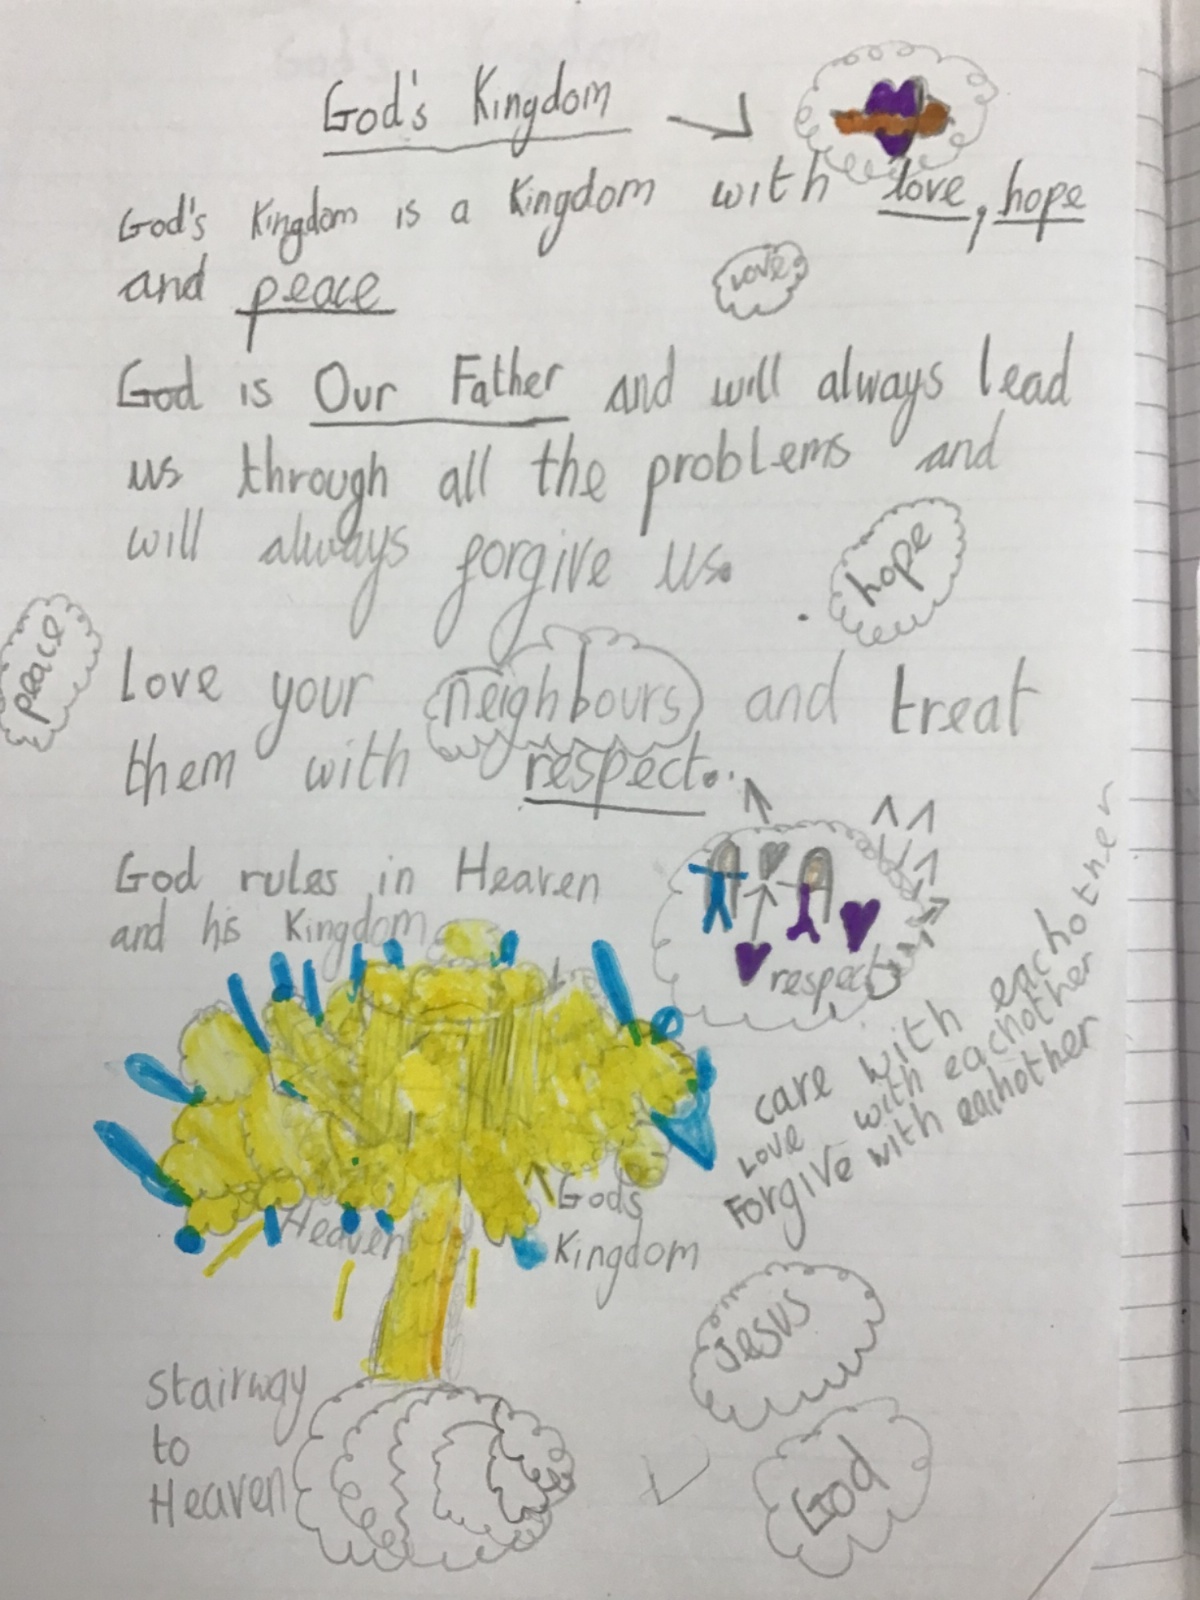 God's Kingdom
God's Kingdom is a Kingdom with love, hope
and peace
love
God is Our Father and will always lead
us through all the problems and
will always forgive us.
hope
peace
Love your neighbours and treat
them with respect.
God rules in Heaven
and his Kingdom
respect
care with eachother
Love with eachother
Forgive with eachother
Heaven
Gods
Kingdom
Jesus
Stairway
to
Heaven
God